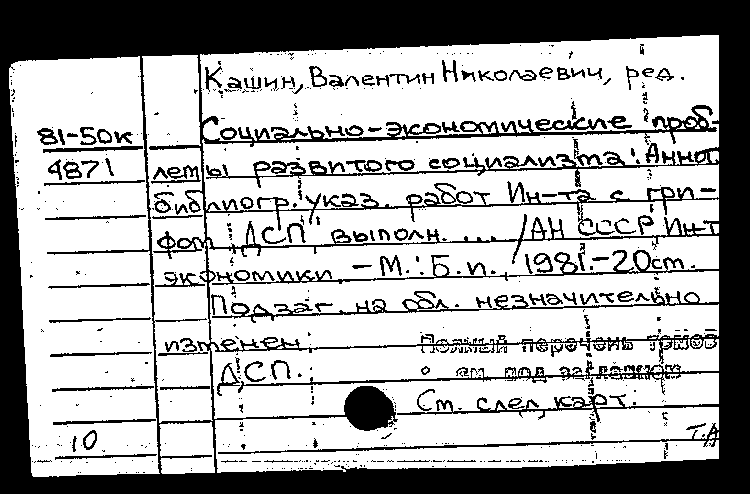 Кашин, Валентин Николаевич, ред.
81-50к Социально-экономические проб-
4871 лемы развитого социализма: Аннот.
библиогр. указ. работ Ин-та с гри-
фом "ДСП", выполн. ... / АН СССР, Ин-т
экономики. - М.: Б.и., 1981. - 20см.
Подзаг. на обл. незначительно
изменен.
Полный перечень томов
ДСП. см. под заглавием
См. след. карт.
10 Т.А